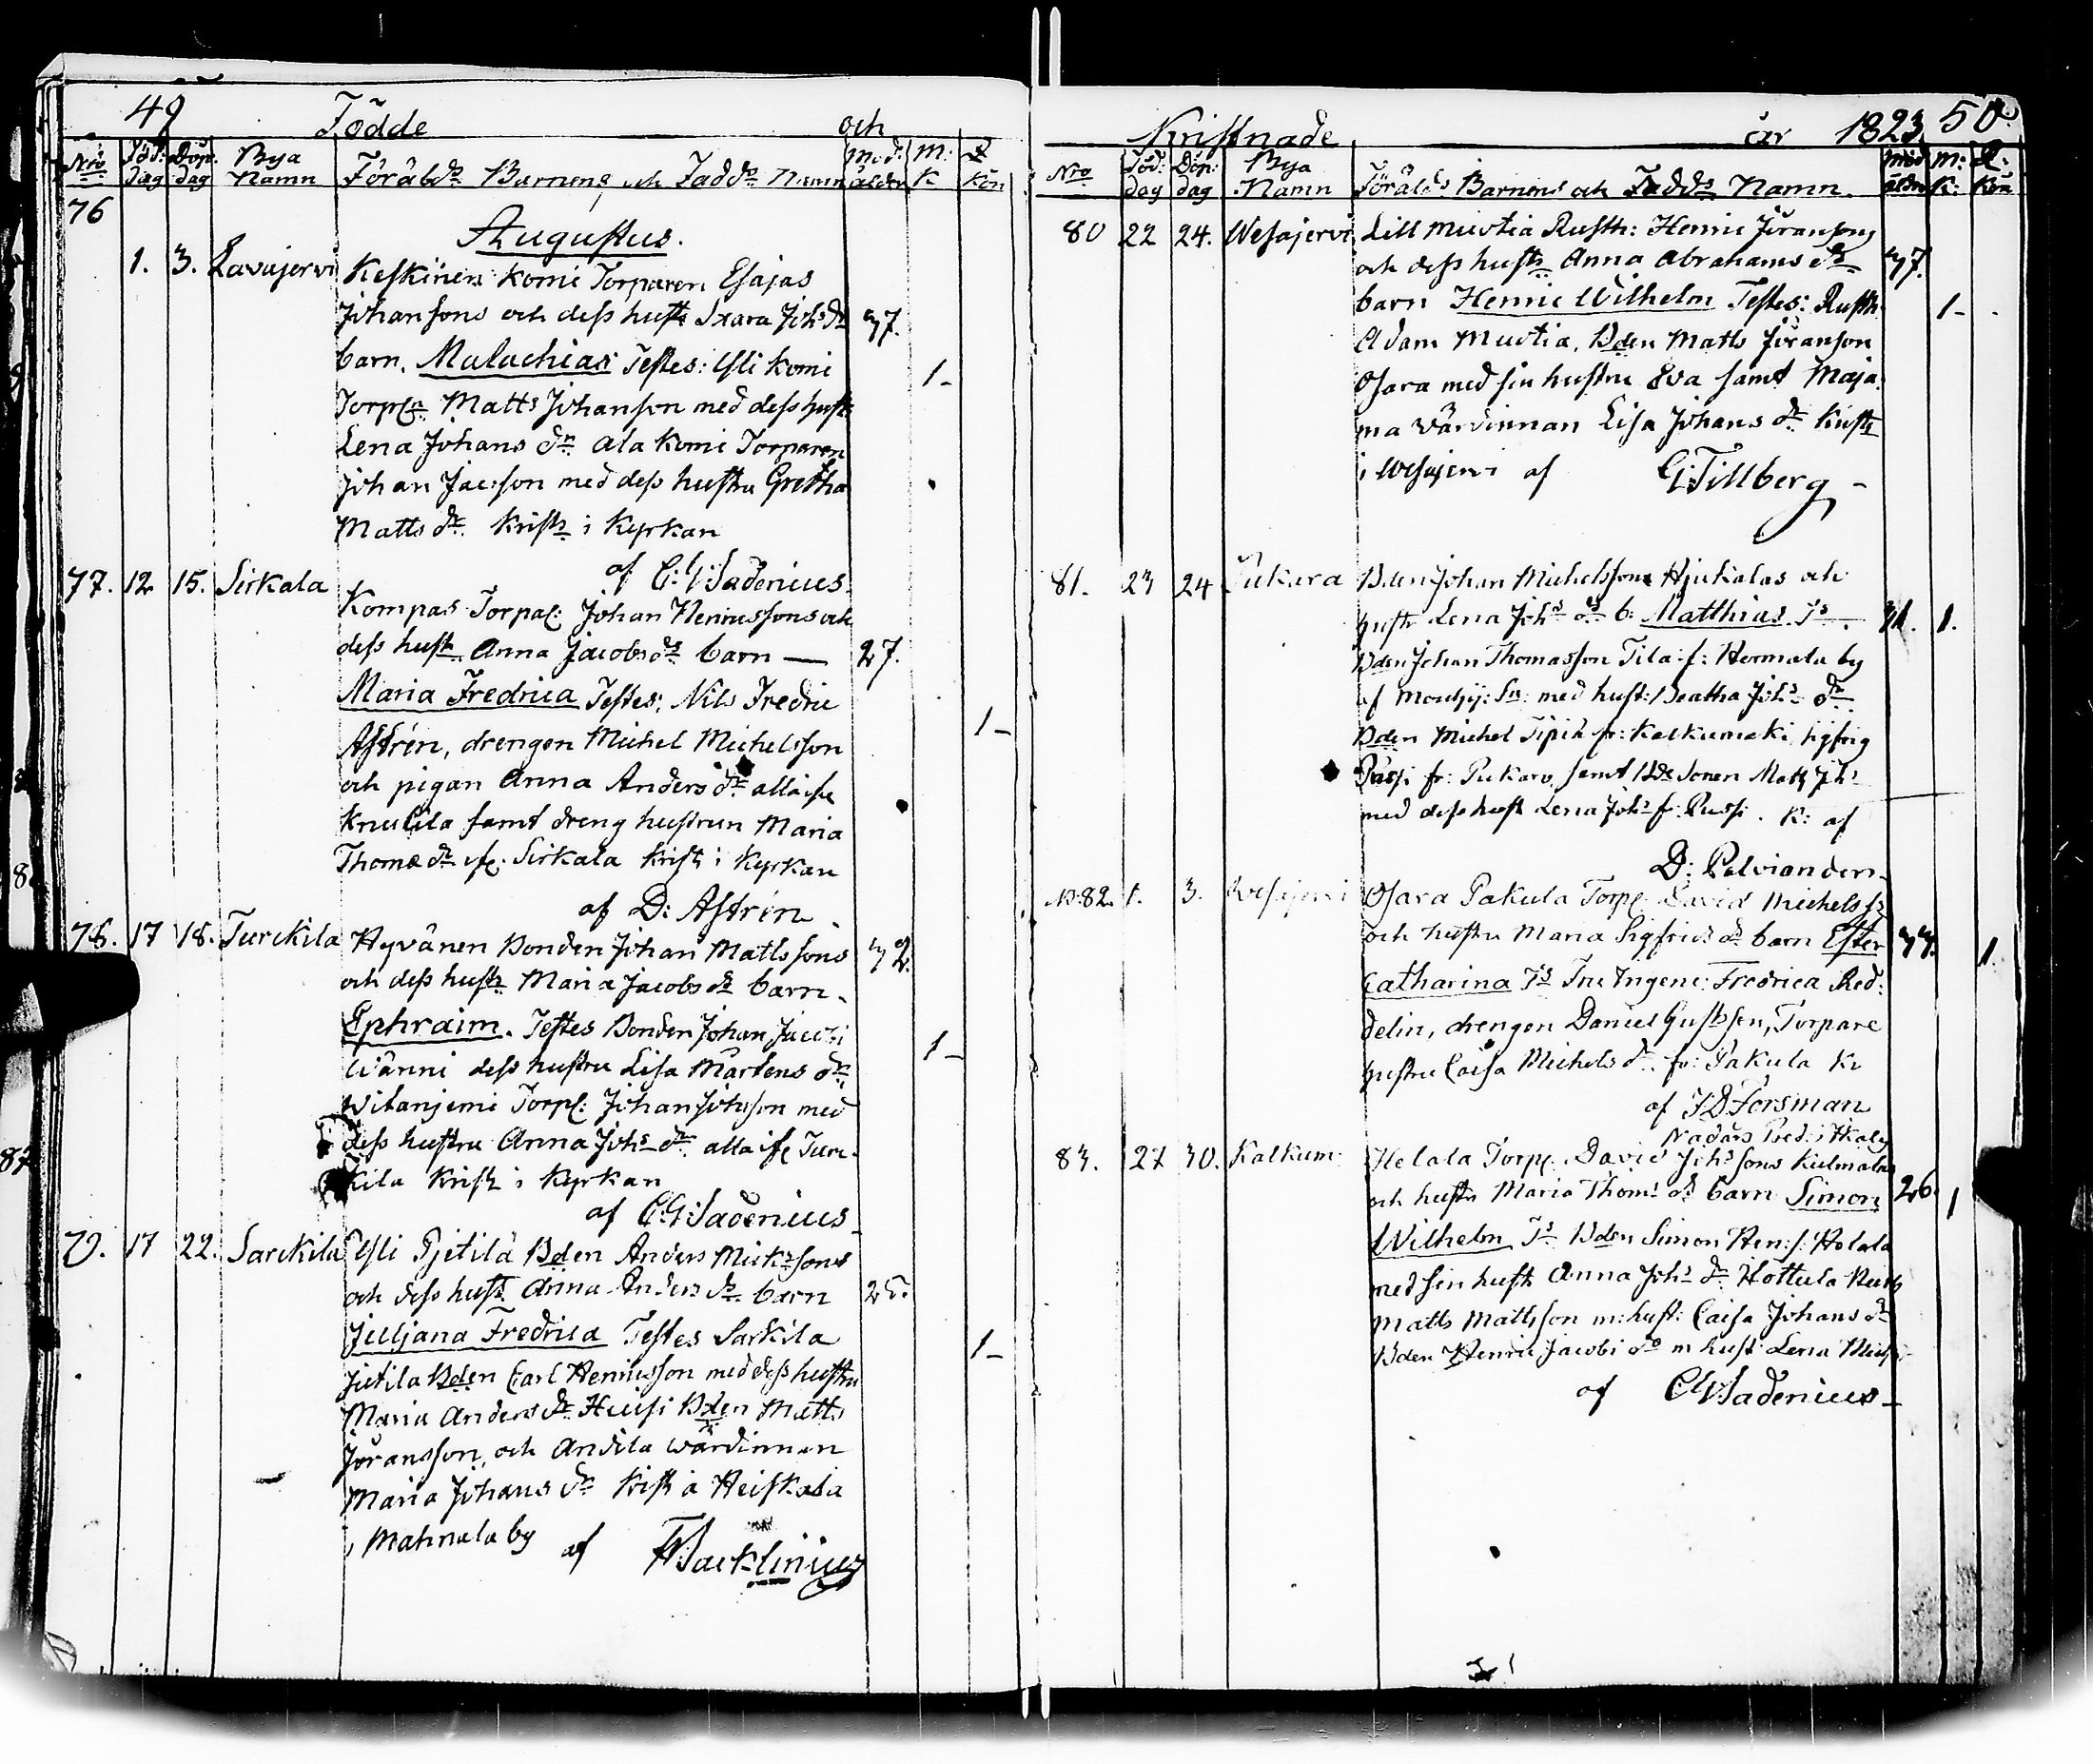 49 Födde och
Nro Föd: dag Döp. dag Bya Namn Föräldrs Barnens och Fadds Namn Mod: ålder M: K Q Kön
76
Augustus.
1. 3. Lavajervi Keskinen Komi Torparen Esajas
Johanssons och dess hustr Sara Johs dr 37.
barn. Malachias Testes: Yli Komi 1-
Torpn Matts Johanson med dess hustr
Lena Johans dr Ala Komi Torparen
Johan Jacsson med dess hustru Gretha
Matts dr Kristn i Kyrkan
af C: G: Sadenius.
77. 12 15. Sirkala
Kompas Torpa: Johan Henricssons och
dess hustr Anna Jacobs dr barn — 27.
Maria Fredrica Testes; Nils Fredric 1-
Astrén, drengen Michel Michelsson
och pigan Anna Anders dr alla ifr
Knutila samt dreng hustrun Maria
Thoms dr ifr: Sirkala Kristn i Kyrkan
af D: Astrén
78. 17 18. Turckila Hyvänen Bonden Johan Matlssons 32.
och dess hustr Maria Jacobs dr barn.
Ephraim. Testes Bonden Johan Jacobi 1-
Wänni dess hustru Lisa Mårtens dr
Witanjemi Torp: Johan Johsson med
dess hustru Anna Johs dr alla ifr Turc-
kila Kristn i Kyrkan
af C: G: Sadenius
79. 17 22. Sarckila Yli Pjetilä Bden Anders Micksons
och dess hustr Anna Anders dr barn 25.
Juljana Fredrica Testes Sarkila 1-
Jutila Bden Carl Henricsson med dess hustru
Maria Anders dr Heisi Bden Matts
Joransson, och Andila wärdinnan
Maria Johans dr Kristn å Heiskala
i Mahnala by af F Backlinius
Kristnade år 1823 50
Nro Föd: dag Döp: dag Bya Namn Föräldrs Barnens och Fadds Namn Mod ålder M: K: Q: Kön
80 22 24. Wesajervi Lill Muotia Rusth: Henric Joransons
och dess hustr Anna Abrahams dr 37.
barn Henric Wilhelm Testes: Rusth. 1-
Adam Muotia, Bden Matts Joranson
Osara med sin hustru Eva samt Maja
ma Värdinnan Lisa Johans dr Kristn
i Wesajervi af G: Tillberg
81. 23 24 Pukara Bden Johan Michelssons Hjukalas och
hustr Lena Johs dr b: Matthias. Ts. 1.
Bden Johan Thomasson Tila f: Hermala by
af Mouhij: Sn: med hust: Beatha Johs dr
Bden Michel Tipik fr: Kalkumaki
fr: Pukara samt Bde Sonen Matts Joh:
med dess hust Lena Johs f: Pussi. K: af
D: Palviander.
N:82. 1. 3. Wesajervi Osara Pakula Torp: David Michels s:
och hustru Maria Sigfrids dr barn Ester 1.
Catharina Ts Fru Ingene: Fredrica Red:
delin, drengen Daniel Gustsson, Torpare
hustru Caisa Michels dr fr: Pakula Kr
af J D Forsman
Nadårs Pred: i Ikalis
83. 27 30. Kalkum Helala Torp: David Johs sons Kulmalas
och hustr Maria Thoms dr barn Simon 26. 1
Wilhelm Ts Bden Simon Hen: s: Holala
med sin hustr Anna Johs dr Hottula
Matts Mattsson m: hust: Caisa Johans dr
Bden Henric Jacobi do m hust: Lena
af C G Sadenius